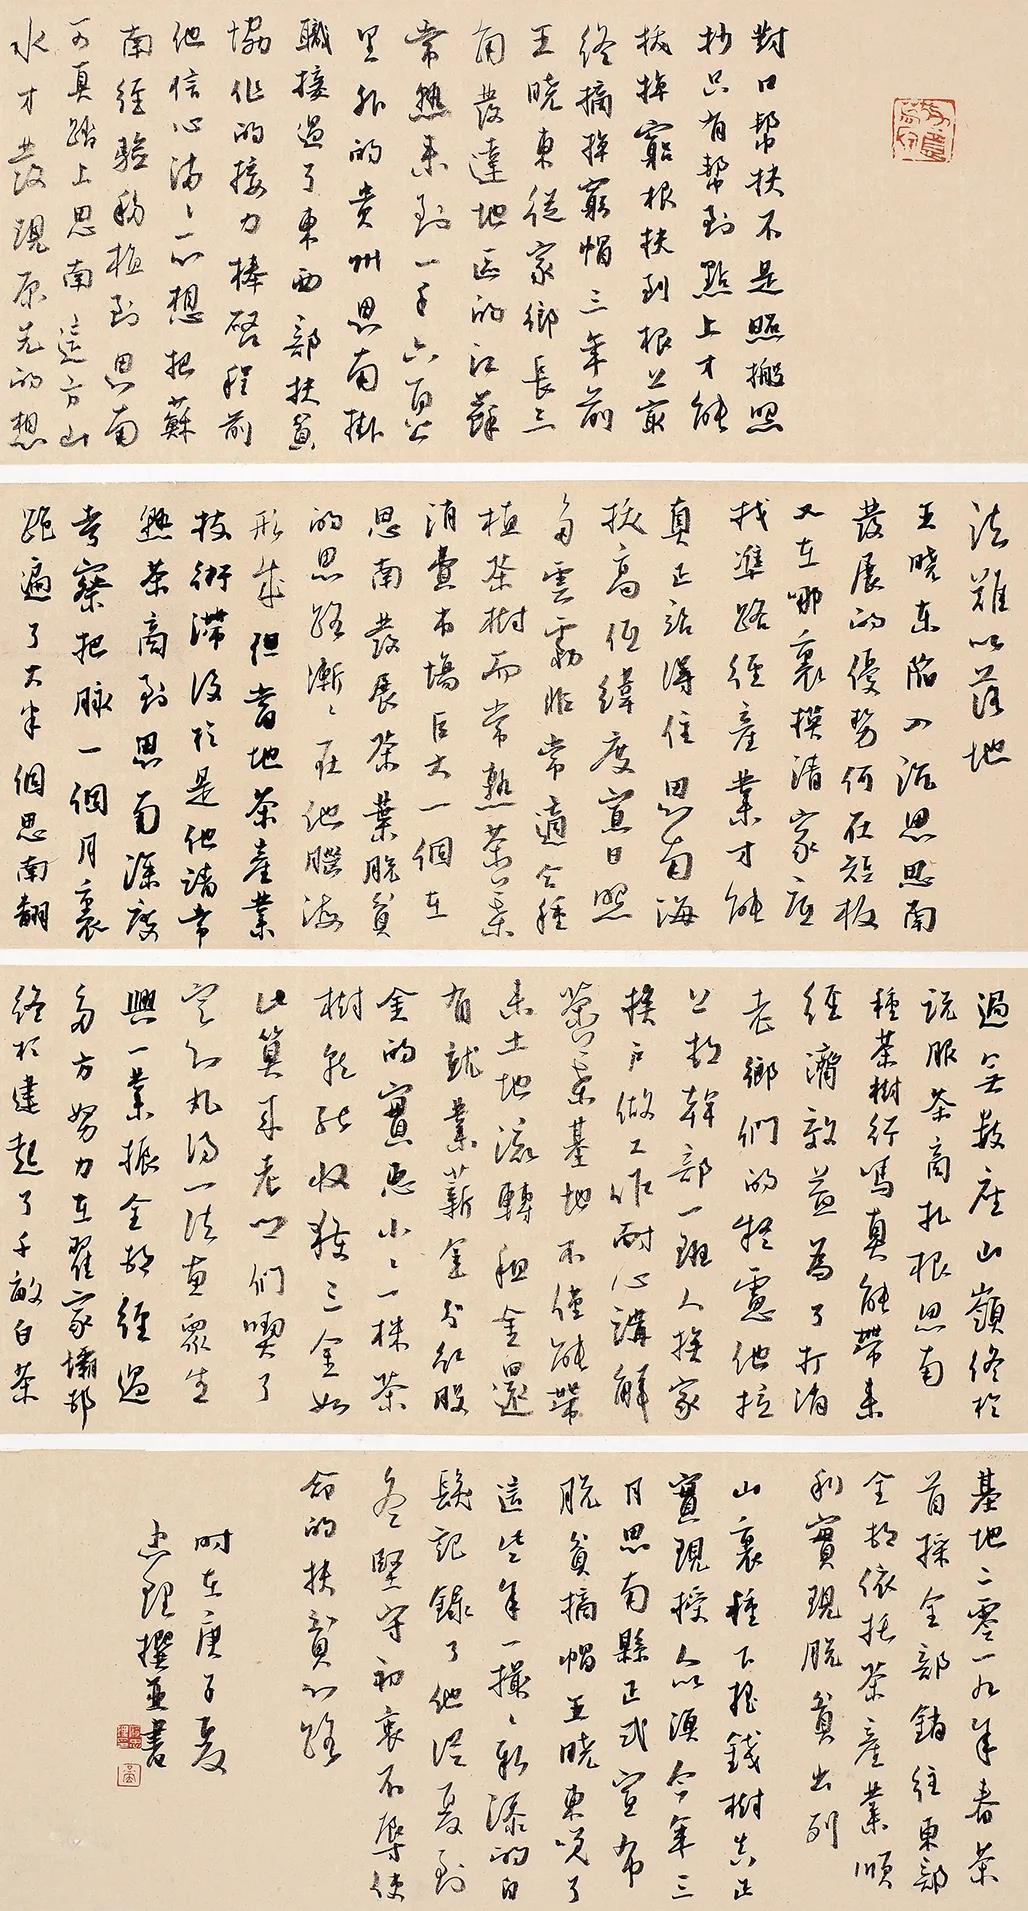 對口幫扶不是照搬照
抄只有幫到點上才能
拔掉窮根扶到根上最
終摘掉窮帽三年前
王曉東從家鄉長三
角發達地區的江蘇
常熟來到一千六百公
里外的貴州思南掛
職接過了東西部扶貧
協作的接力棒啓程前
他信心滿滿一心想把蘇
南經驗移植到思南
可真踏上思南這方山
水才發現原先的想
法難以落地
王曉東陷入沉思思南
發展的優勢何在短板
又在哪裏摸清家底
找準路徑產業才能
真正站得住思南海
拔高低緯度寡日照
多雲霧非常適合種
植茶樹而常熟茶葉
消費市場巨大一個在
思南發展茶葉脫貧
的思路漸漸在他腦海
形成但當地茶產業
技術滯後於是他請常
熟茶商到思南深度
考察把脉一個月裏
跑遍了大半個思南翻
過無數座山嶺終於
說服茶商扎根思南
種茶樹行嗎真能帶來
經濟效益爲了打消
老鄉們的疑慮他拉
上村幹部一班人挨家
挨戶做工作耐心講解
茶葉基地不僅能帶
來土地流轉租金還
有就業薪金分紅股
金的實惠小小一株茶
樹就能收獲三金如
此算來老鄉們喫了
定心丸得一法惠眾生
興一業振全村經過
多方努力在翟家壩村
終於建起了千畝白茶
基地二零一九年春茶
首採全部銷往東部
全村依托茶產業順
利實現脫貧出列
山裏種下搖錢樹真正
實現授人以漁今年三
月思南縣正式宣布
脫貧摘帽王曉東笑了
這些年一撮撮新添的白
髮記錄了他從夏到
冬堅守初衷不辱使
命的扶貧心路
時在庚子夏
忠理撰並書